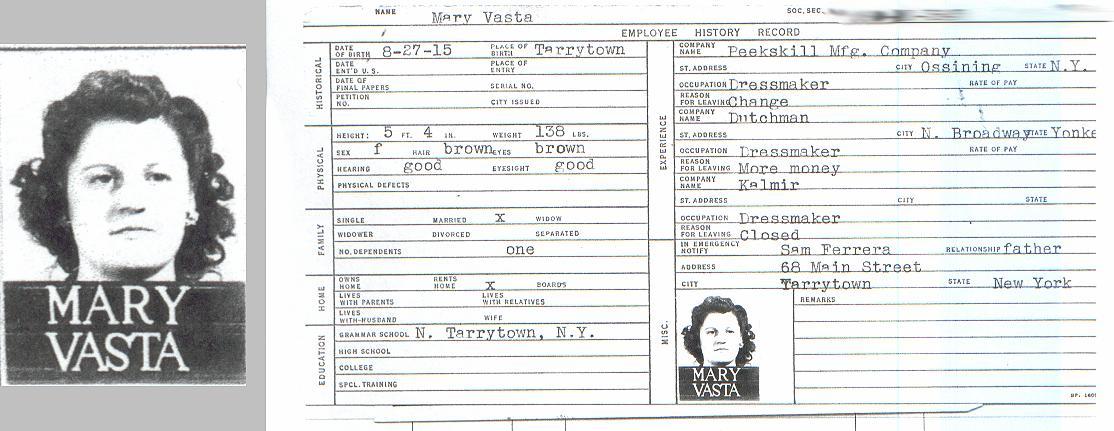 NAME Mary Vasta SOC. SEC.
EMPLOYEE HISTORY RECORD
HISTORICAL
DATE OF BIRTH 8-27-15 PLACE OF BIRTH Tarrytown
DATE ENT'D U.S. PLACE OF ENTRY
DATE OF FINAL PAPERS SERIAL NO.
PETITION NO. CITY ISSUED
PHYSICAL
HEIGHT: 5 FT. 4 IN. WEIGHT 138 LBS.
SEX f HAIR brown EYES brown
HEARING good EYESIGHT good
PHYSICAL DEFECTS
FAMILY
SINGLE MARRIED X WIDOW
WIDOWER DIVORCED SEPARATED
NO. DEPENDENTS one
HOME
OWNS HOME RENTS HOME X BOARDS
LIVES WITH PARENTS LIVES WITH RELATIVES
LIVES WITH-HUSBAND WIFE
EDUCATION
GRAMMAR SCHOOL N. Tarrytown, N.Y.
HIGH SCHOOL
COLLEGE
SPCL. TRAINING
EXPERIENCE
COMPANY NAME Peekskill Mfg. Company
ST. ADDRESS CITY Ossining STATE N.Y.
OCCUPATION Dressmaker RATE OF PAY
REASON FOR LEAVING Change
COMPANY NAME Dutchman
ST. ADDRESS CITY N. Broadway STATE Yonke
OCCUPATION Dressmaker RATE OF PAY
REASON FOR LEAVING More money
COMPANY NAME Kalmir
ST. ADDRESS CITY STATE
OCCUPATION Dressmaker
REASON FOR LEAVING Closed
MISC.
IN EMERGENCY NOTIFY Sam Ferrera RELATIONSHIP father
ADDRESS 68 Main Street
CITY Tarrytown STATE New York
REMARKS
MARY
VASTA
MARY
VASTA